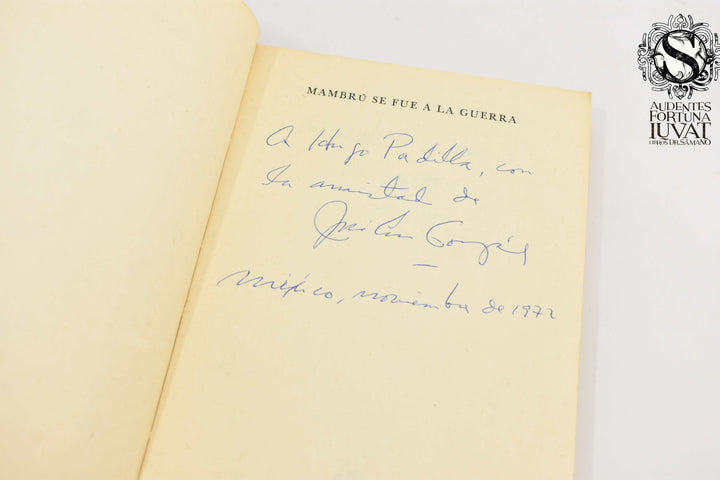 MAMBRÚ SE FUE A LA GUERRA
A Hugo Padilla, con
la amistad de
José Luis González
México, noviembre de 1972
S
AUDENTES
FORTUNA
IUVAT
LIBROS DR. SÁMANO